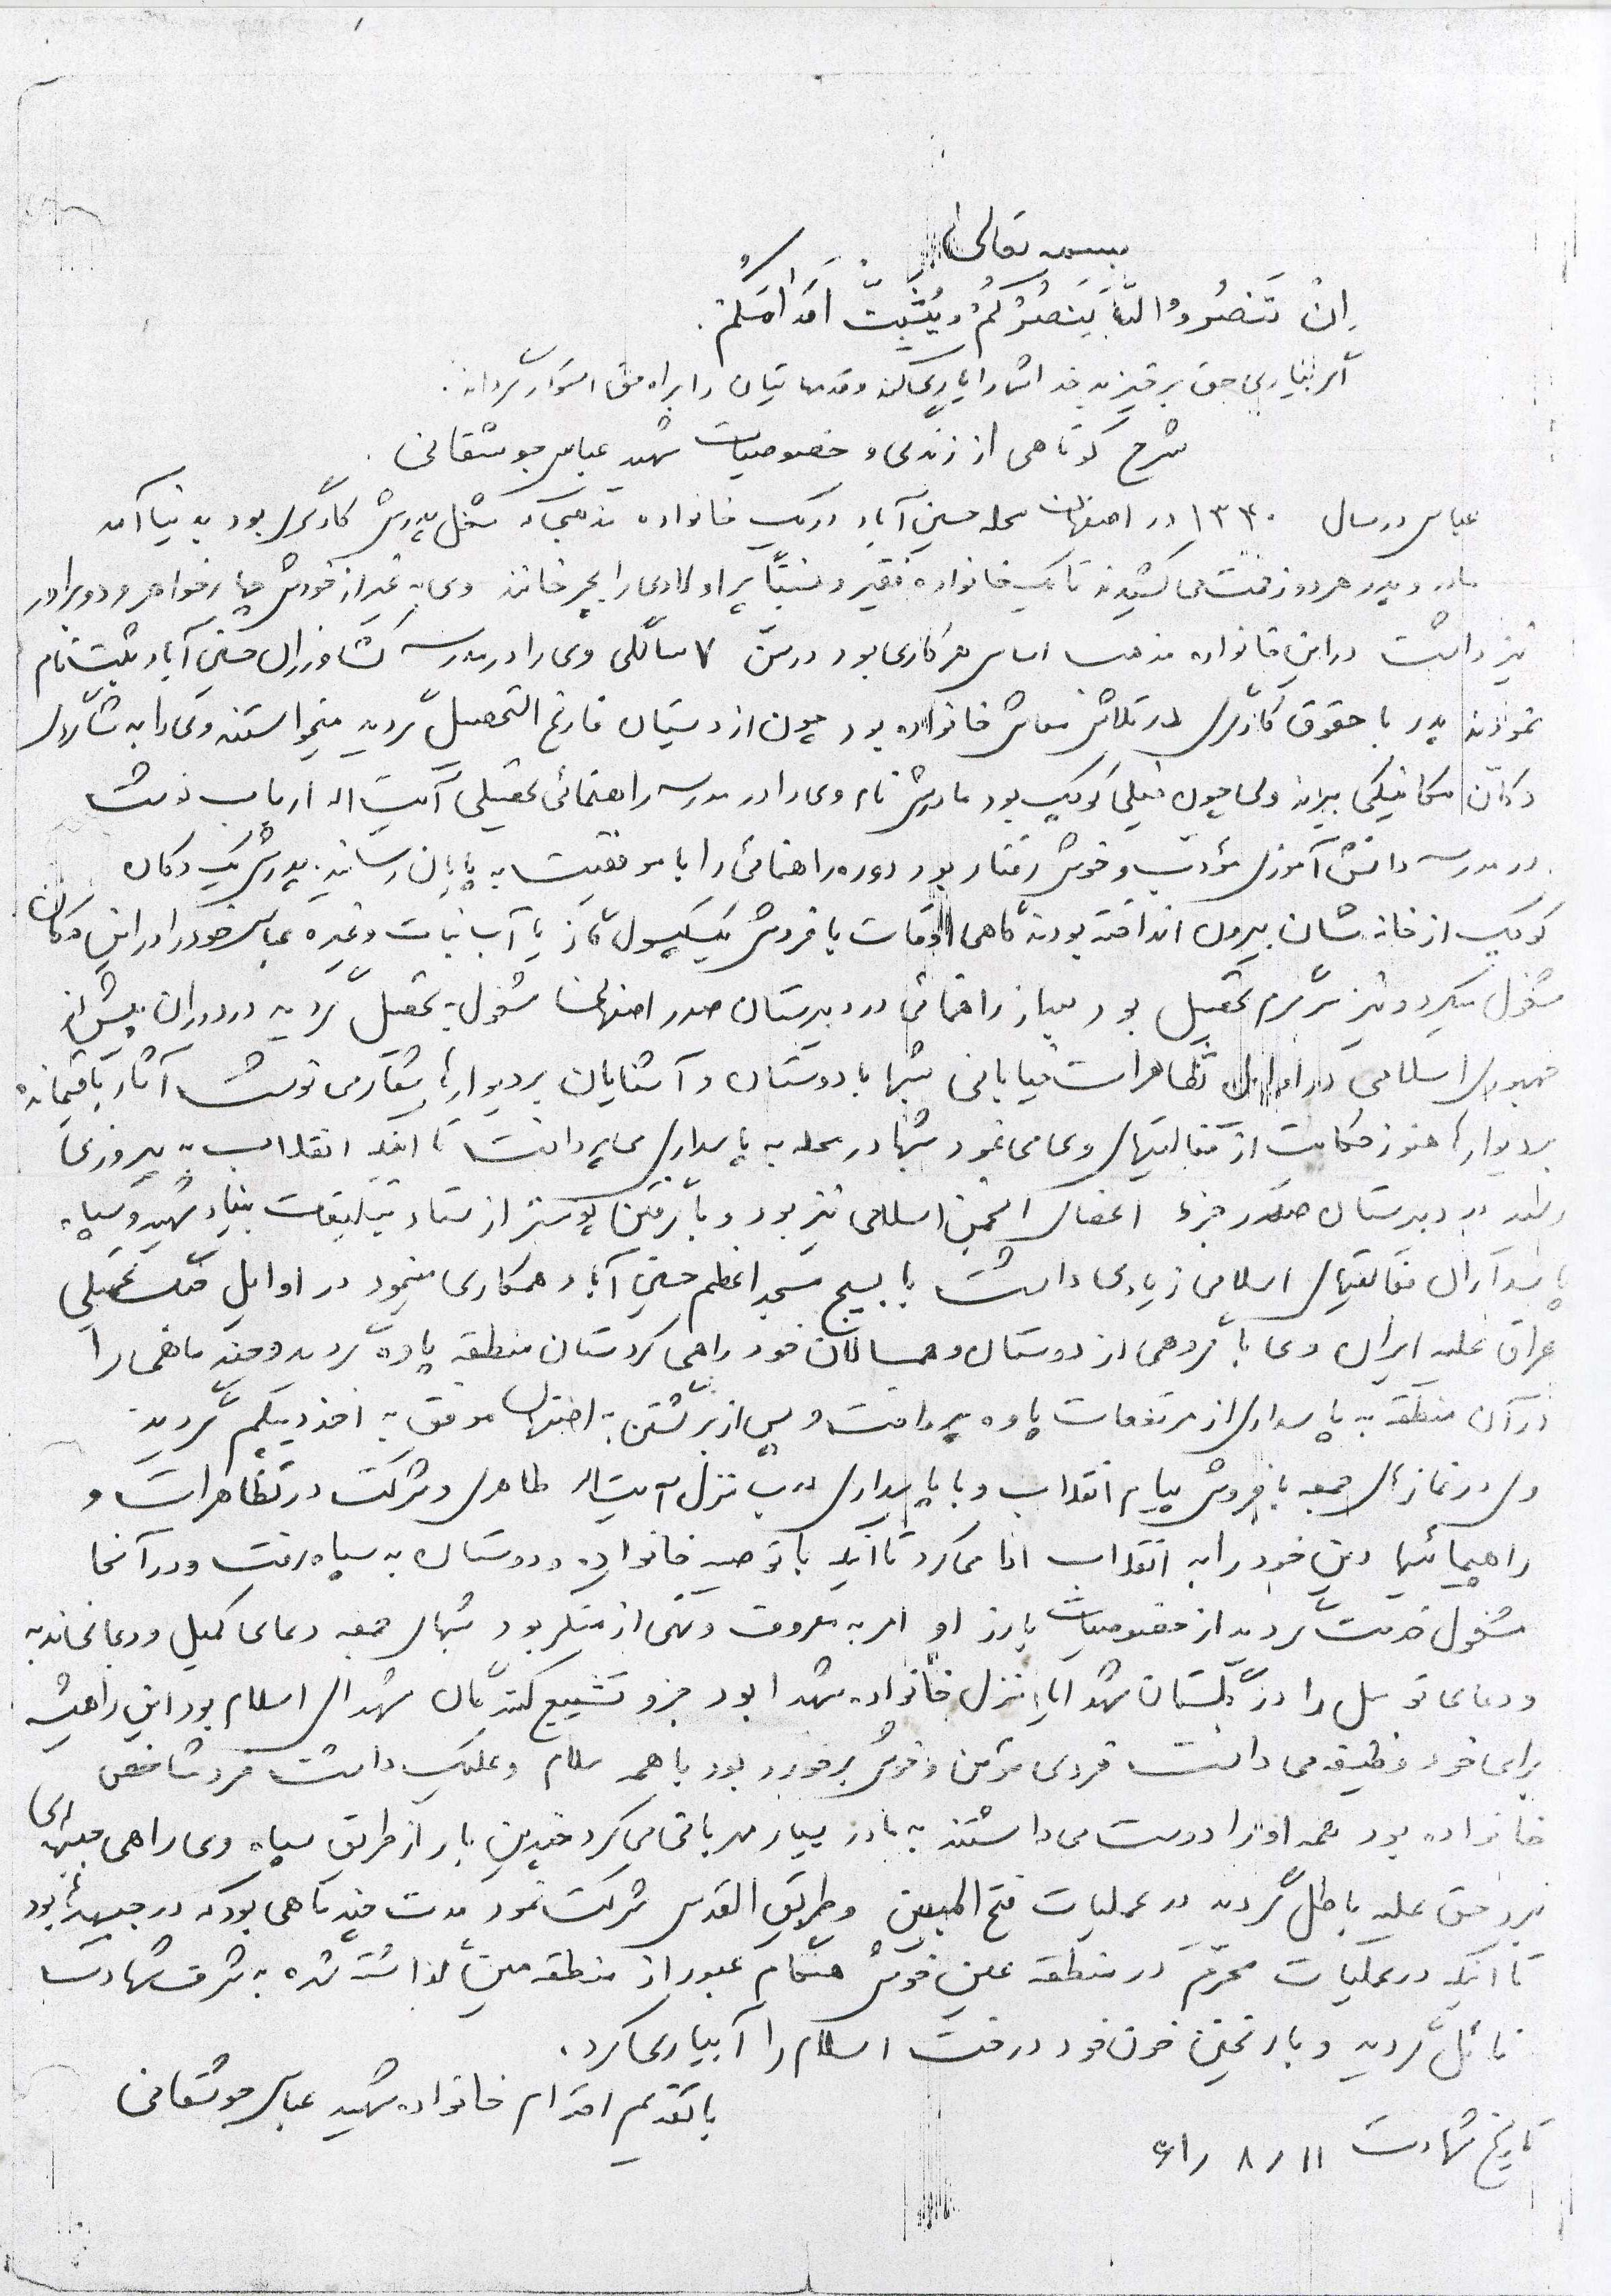 بسمه تعالی
اِنْ تَنصُرُوا اللهَ یَنصُرْکُمْ وَ یُثَبِّتْ اَقْدامَکُمْ.
اگر بیاری حق برخیزید خدا شما را یاری کند و قدمهایتان را براه حق استوار گرداند.
شرح کوتاهی از زندگی و خصوصیات شهید عباس جوشقانی.
عباس در سال ۱۳۴۰ در اصفهان محله حسین آباد در یک خانواده مذهبی که شغل پدرش کارگری بود به دنیا آمد
مادر و پدر هر دو زحمت می کشیدند تا یک خانواده فقیر و نسبتاً پر اولادی را بچرخانند وی به غیر از خودش چهار خواهر و دو برادر
نیز داشت در این خانواده مذهب اساس هر کاری بود در سن ۷ سالگی وی را در مدرسه کشاورزان حسین آباد ثبت نام
نمودند پدر با حقوق کارگری در تلاش معاش خانواده بود چون از دبستان فارغ التحصیل گردید میخواستند وی را به شاگردی
دکان مکانیکی ببرند ولی چون خیلی کوچک بود مادرش نام وی را در مدرسه راهنمائی عقیلی آیت اله ارباب نوشت
در مدرسه دانش آموزی مؤدب و خوش رفتار بود دوره راهنمائی را با موفقیت به پایان رسانید. پدرش یک دکان
کوچک از خانه شان بیرون انداخته بودند گاهی اوقات با فروش کپسول گاز یا آب نبات و غیره عباس خود را در این دکان
مشغول میکرد و نیز سرگرم تحصیل بود بعد از راهنمائی در دبیرستان صدر اصفهان مشغول به تحصیل گردید در دوران پیش از
جمهوری اسلامی در اوایل تظاهرات خیابانی شبها با دوستان و آشنایان بر دیوارها شعار می نوشت آثار باقیمانده
بر دیوارها هنوز حکایت از فعالیتهای وی می نمود شبها در محله به پاسداری می پرداخت تا اینکه انقلاب به پیروزی
رسید در دبیرستان صدر جزء اعضای انجمن اسلامی نیز بود و با گرفتن پوستر از ستاد تبلیغات بنیاد شهید و سپاه
پاسداران فعالیتهای اسلامی زیادی داشت با بسیج مسجد اعظم حسین آباد همکاری مینمود در اوایل جنگ تحمیلی
عراق علیه ایران وی با گروهی از دوستان و همسالان خود راهی کردستان منطقه پاوه گردید و چند ماهی را
در آن منطقه به پاسداری از مرتفعات پاوه پرداخت و پس از برگشتن به اصفهان موفق به اخذ دیپلم گردید
وی در نمازهای جمعه با فروش پیام انقلاب و با پاسداری درب منزل آیت اله طاهری و شرکت در تظاهرات و
راهپیمائیها دین خود را به انقلاب ادا می کرد تا آنکه با توصیه خانواده و دوستان به سپاه رفت و در آنجا
مشغول خدمت گردید از خصوصیات بارز او امر به معروف و نهی از منکر بود شبهای جمعه دعای کمیل و دعای ندبه
و دعای توسل را در گلستان شهدا یا منزل خانواده شهدا بود جزو تشییع کنندگان شهدای اسلام بود این را همیشه
برای خود وظیفه می دانست فردی مؤمن و خوش برخورد بود با همه سلام و علیک داشت فرد شاخص
خانواده بود همه او را دوست می داشتند به مادر بسیار مهربانی می کرد چندین بار از طریق سپاه وی راهی جبهه های
نبرد حق علیه باطل گردید در عملیات فتح المبین و طریق القدس شرکت نمود مدت چند ماهی بود که در جبهه ها بود
تا اینکه در عملیات محرم در منطقه عین خوش هنگام عبور از منطقه مین گذاشته شده به شرف شهادت
نائل گردید و با ریختن خون خود درخت اسلام را آبیاری کرد.
با تقدیم احترام خانواده شهید عباس جوشقانی
تاریخ شهادت ۱۱ / ۸ / ۶۱